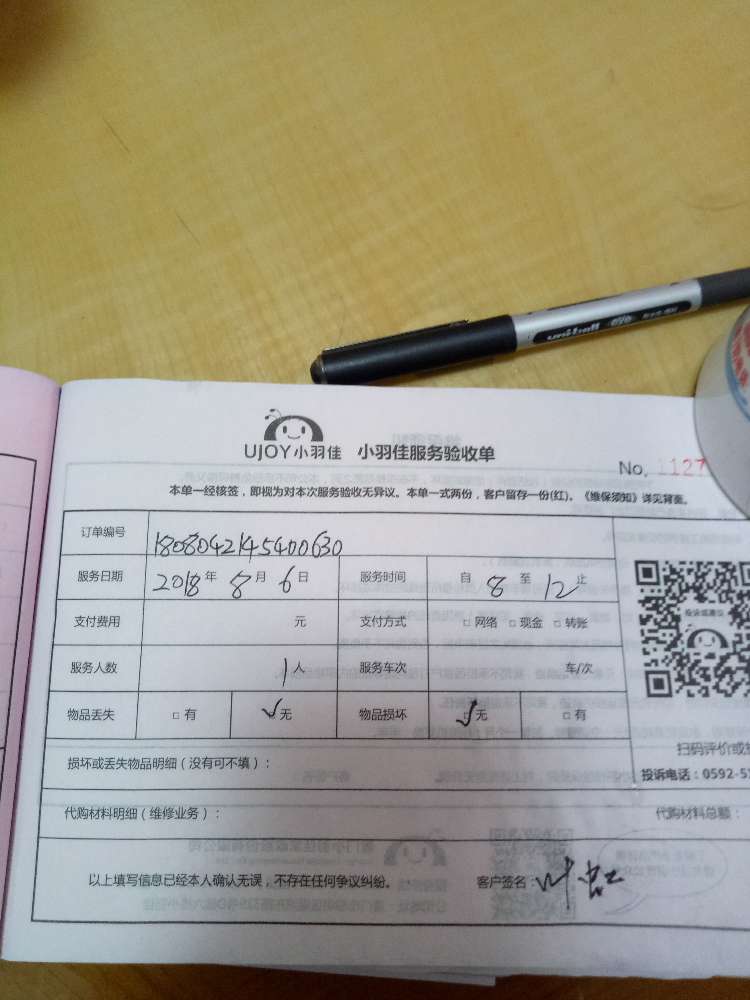 uni-ball eye
UJOY小羽佳 小羽佳服务验收单
No. 1127
本单一经核签，即视为对本次服务验收无异议。本单一式两份，客户留存一份(红)。《维保须知》详见背面。
订单编号 1808042145400630
服务日期 2018年8月6日 服务时间 自8至12止
支付费用 元 支付方式 □网络 □现金 □转账
服务人数 1人 服务车次 车/次
物品丢失 □有 ☑无 物品损坏 ☑无 □有
投诉或建议
损坏或丢失物品明细（没有可不填）： 扫码评价或
投诉电话：0592-5
代购材料明细（维修业务）： 代购材料总额：
以上填写信息已经本人确认无误，不存在任何争议纠纷。 客户签名：叶